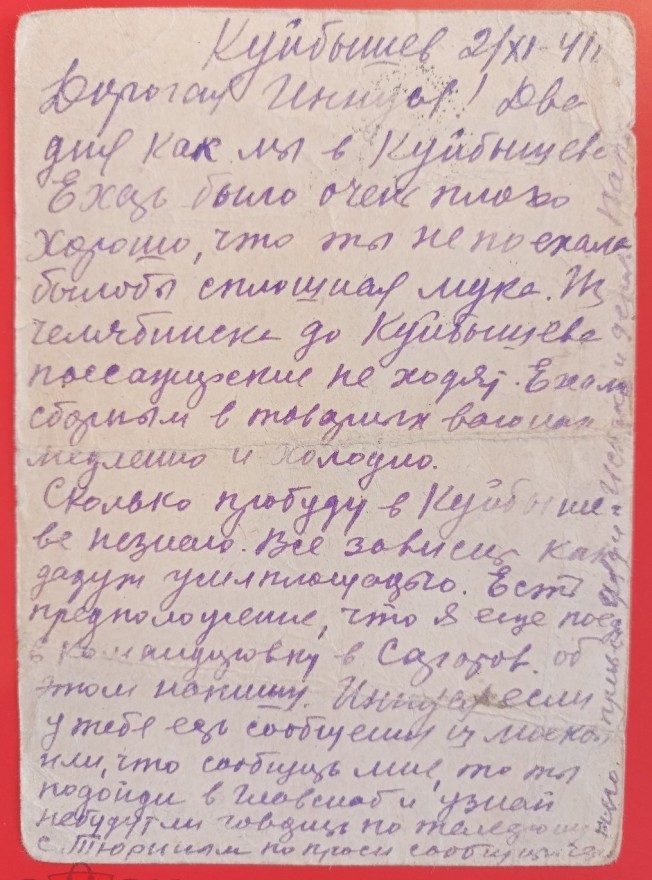 Куйбышев 2/XI-41г.
Дорогая Иннуся! Два
дня как мы в Куйбышеве
Ехать было очень плохо
Хорошо, что ты не поехала
было бы сплошная мука. Из
Челябинска до Куйбышева
пассажирские не ходят. Ехали
сборным в товарных вагонах
медленно и холодно.
Сколько пробуду в Куйбыше-
ве незнаю. Все зависит как
дадут жилплощадью. Есть
предположение, что я еще
в командировку в Саратов. об
этом напишу. Иннуся если
у тебя есть сообщения из Москвы
или, что сообщить мне, то ты
подойди в Главснаб и узнай
небудут ли говорить по
с попроси сообщить